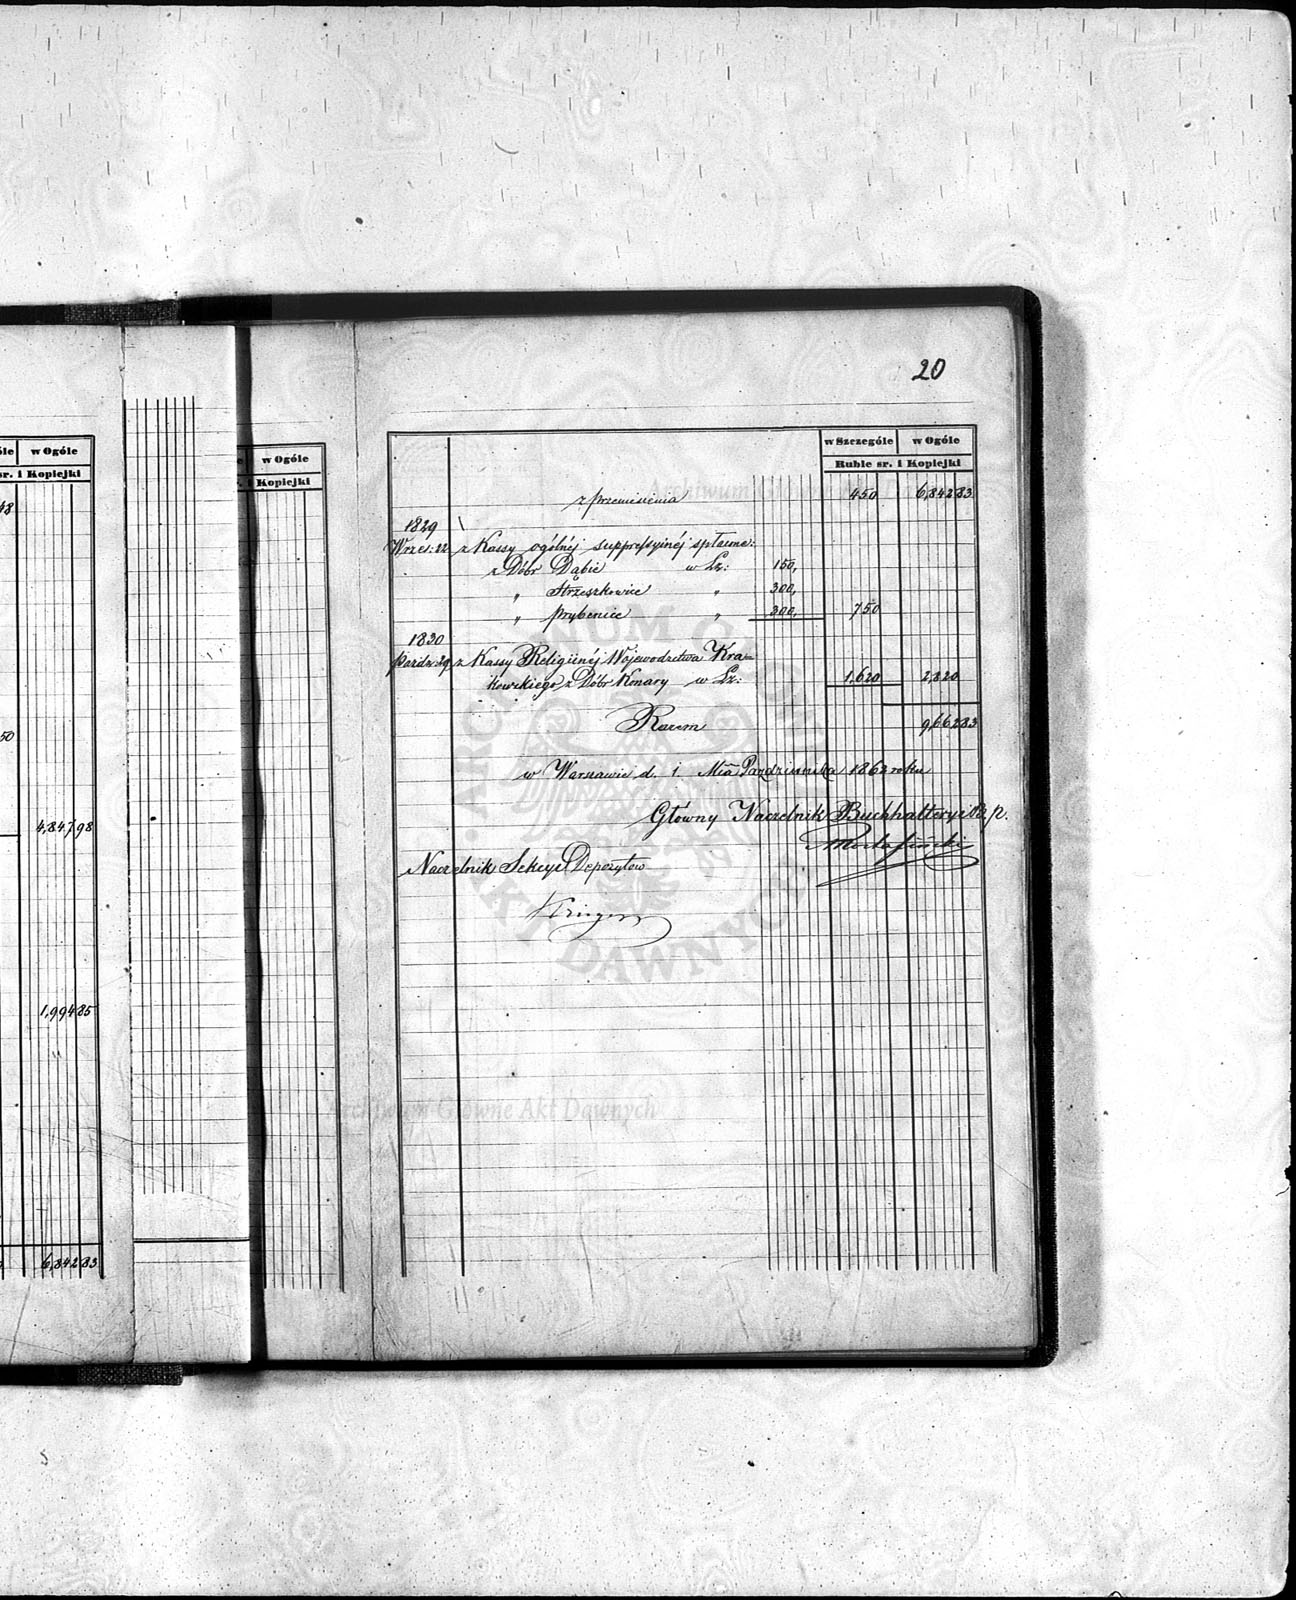 20
w Ogóle
sr. i Kopiejki
4,847 98
1,994 85
6,842 83
w Ogóle
i Kopiejki
w Szczególe w Ogóle
Ruble sr. i Kopiejki
z przeniesienia 450 6,842 83
1829
Wrześ: 22 z Kassy ogólnéj suppressyinéj spłacone:
z Dóbr Dąbie w Lz: 150,
" Strzeszkowice " 300,
" Prybenice " 300, 750
1830
Paźdz: 29 z Kassy Religiinéj Województwa Kra-
kowskiego z Dóbr Konary w Lz: 1,620 2,820
Razem 9,662 83
w Warszawie d. 1. Mca Października 1863 roku
Główny Naczelnik Buchhalteryi
Naczelnik Sekcyi Depozytow
Archiwum Główne Akt Dawnych
ARCHIWUM GŁÓWNE AKT DAWNYCH